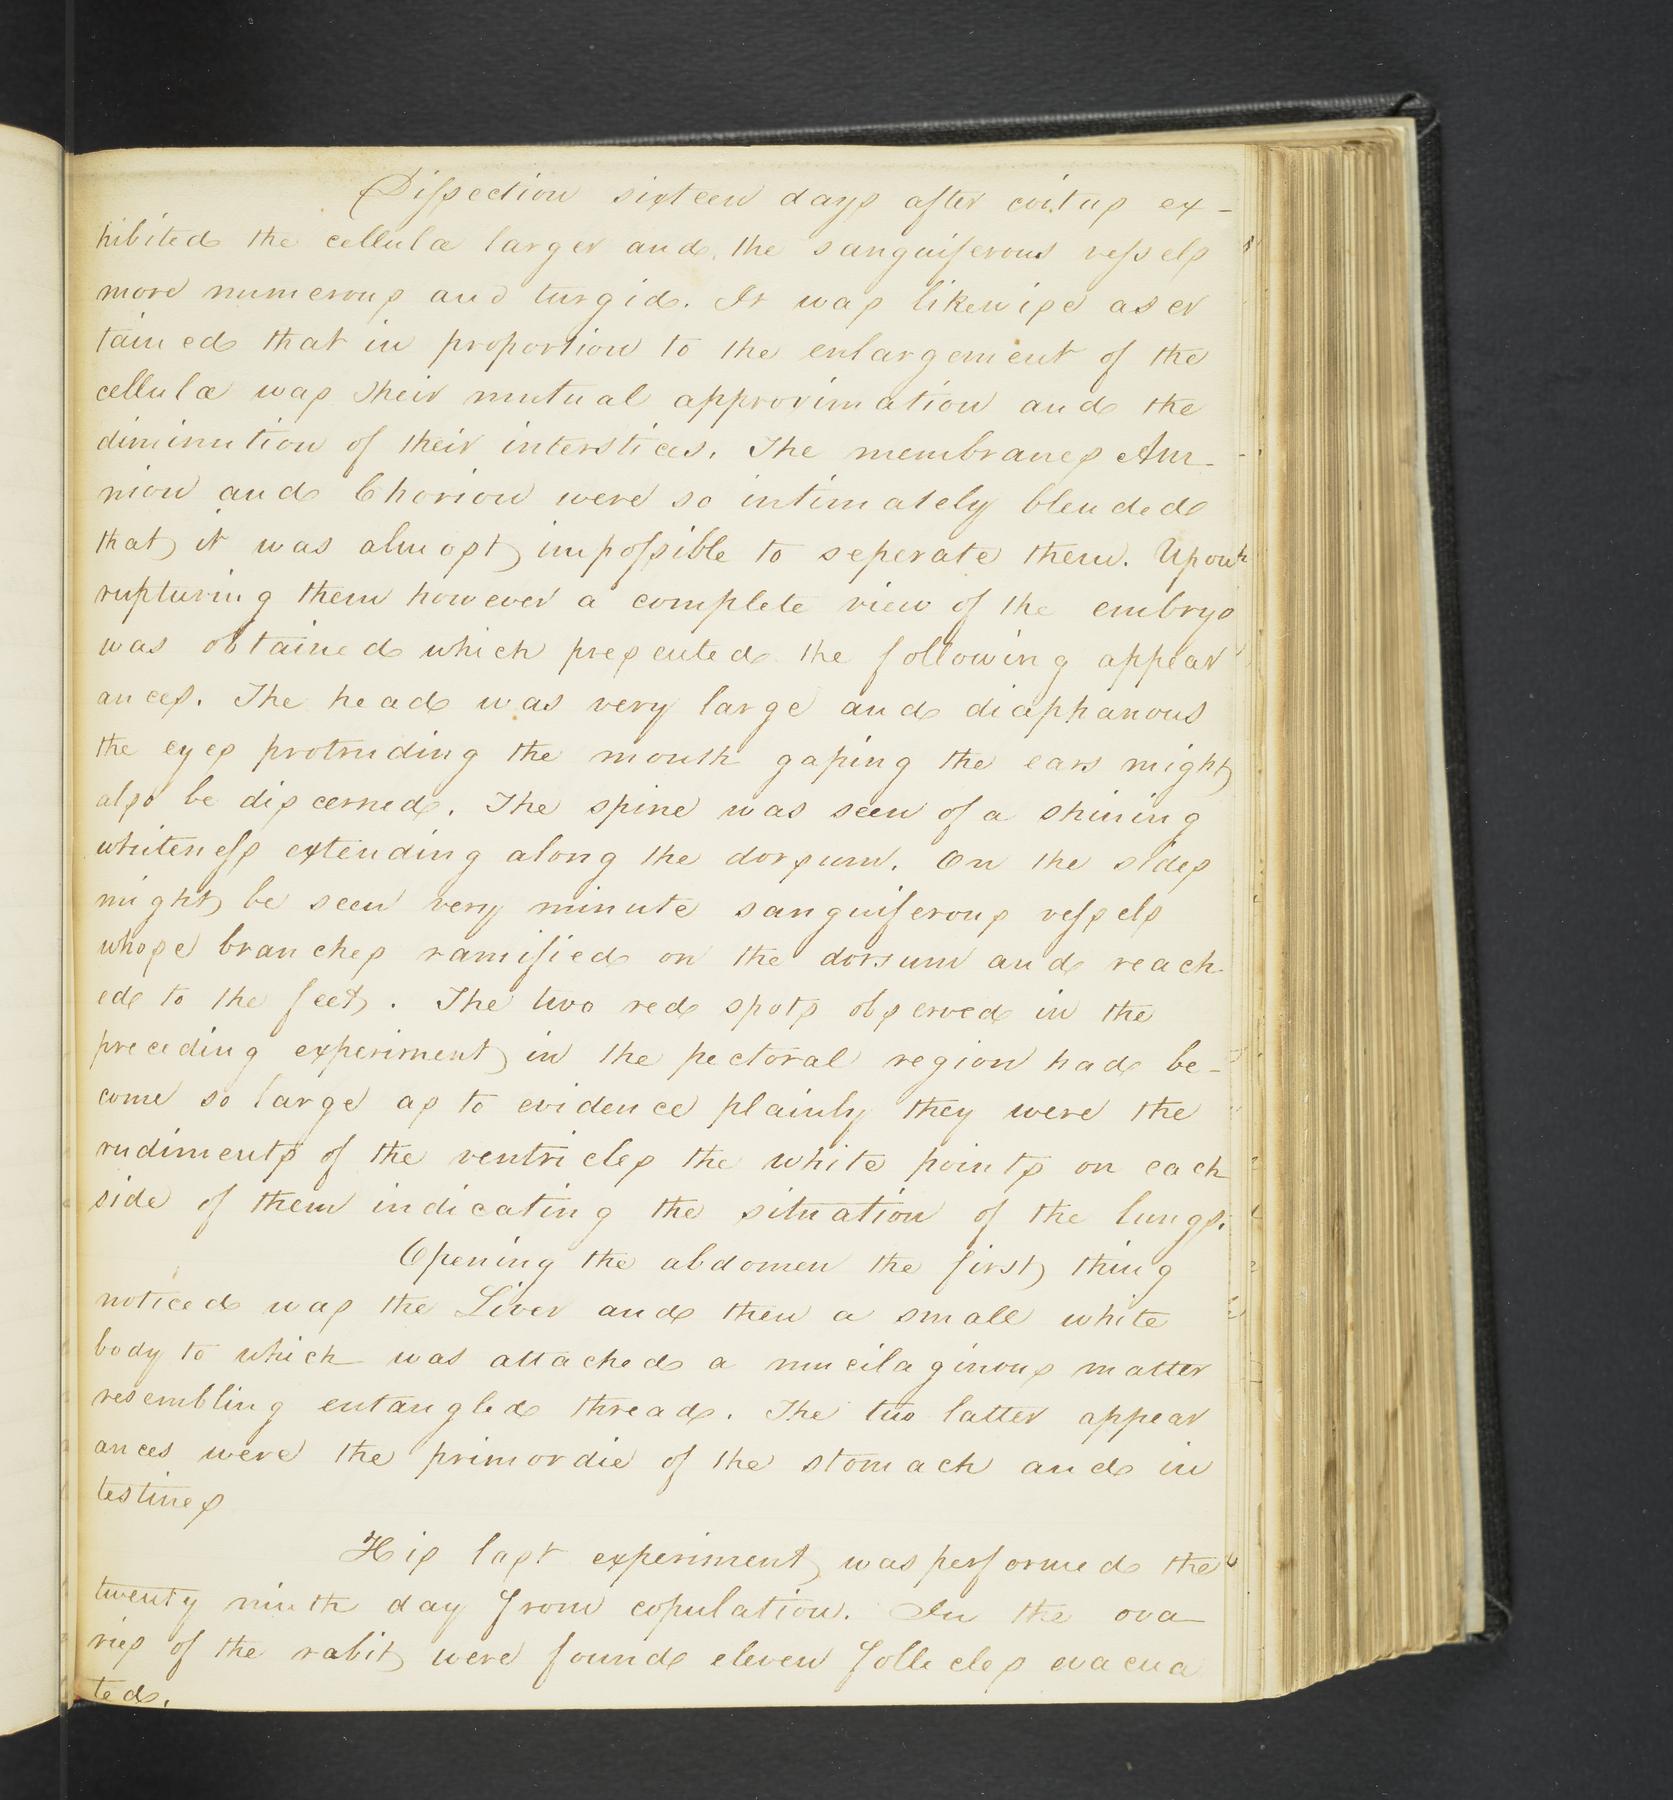 Dissection sixteen days after coitus ex-
hibited the cellulæ larger and the sanguiferous vessels
more numerous and turgid. It was likewise ascer
tained that in proportion to the enlargement of the
cellulæ was their mutual approximation and the
diminution of their interstices. The membranes Am-
nion and Chorion were so intimately blended
that it was almost impossible to seperate them. Upon
rupturing them however a complete view of the embryo
was obtained which presented the following appear
ances. The head was very large and diaphanous
the eyes protruding the mouth gaping the ears might
also be discerned. The spine was seen of a shining
whiteness extending along the dorsum. On the sides
might be seen very minute sanguiferous vessels
whose branches ramified on the dorsum and reach
ed to the feet. The two red spots observed in the
preceding experiment in the pectoral region had be-
come so large as to evidence plainly they were the
rudiments of the ventricles the white points on each
side of them indicating the situation of the lungs.
Opening the abdomen the first thing
noticed was the Liver and then a small white
body to which was attached a mucilaginous matter
resembling entangled thread. The two latter appear
ances were the primordie of the stomach and in
testines
His last experiment was performed the
twenty ninth day from copulation. In the ova
ries of the rabit were found eleven follecles evacua
ted.